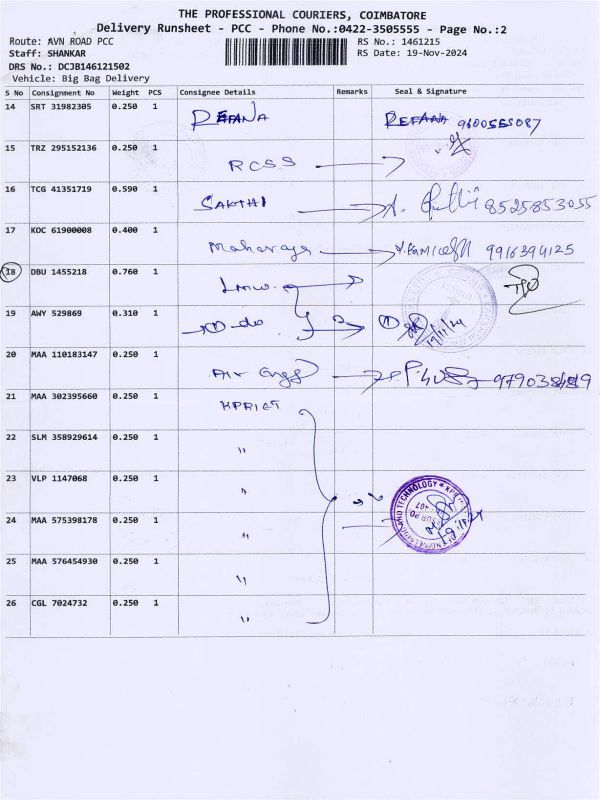 THE PROFESSIONAL COURIERS, COIMBATORE
Delivery Runsheet - PCC - Phone No.:0422-3505555 - Page No.:2
Route: AVN ROAD PCC RS No.: 1461215
Staff: SHANKAR RS Date: 19-Nov-2024
DRS No.: DCJB146121502
Vehicle: Big Bag Delivery
S No Consignment No Weight PCS Consignee Details Remarks Seal & Signature
14 SRT 31982305 0.250 1 REFANA REFANA
15 TRZ 295152136 0.250 1 RCSS
16 TCG 41351719 0.590 1 SAKTHI 8525853055
17 KOC 61900008 0.400 1 Maharaja 9916394125
18 DBU 1455218 0.760 1
19 AWY 529869 0.310 1 do 19/11/24
20 MAA 110183147 0.250 1
21 MAA 302395660 0.250 1 KPRIET
22 SLM 358929614 0.250 1 "
23 VLP 1147068 0.250 1 "
24 MAA 575398178 0.250 1 "
25 MAA 576454930 0.250 1 "
26 CGL 7024732 0.250 1 "